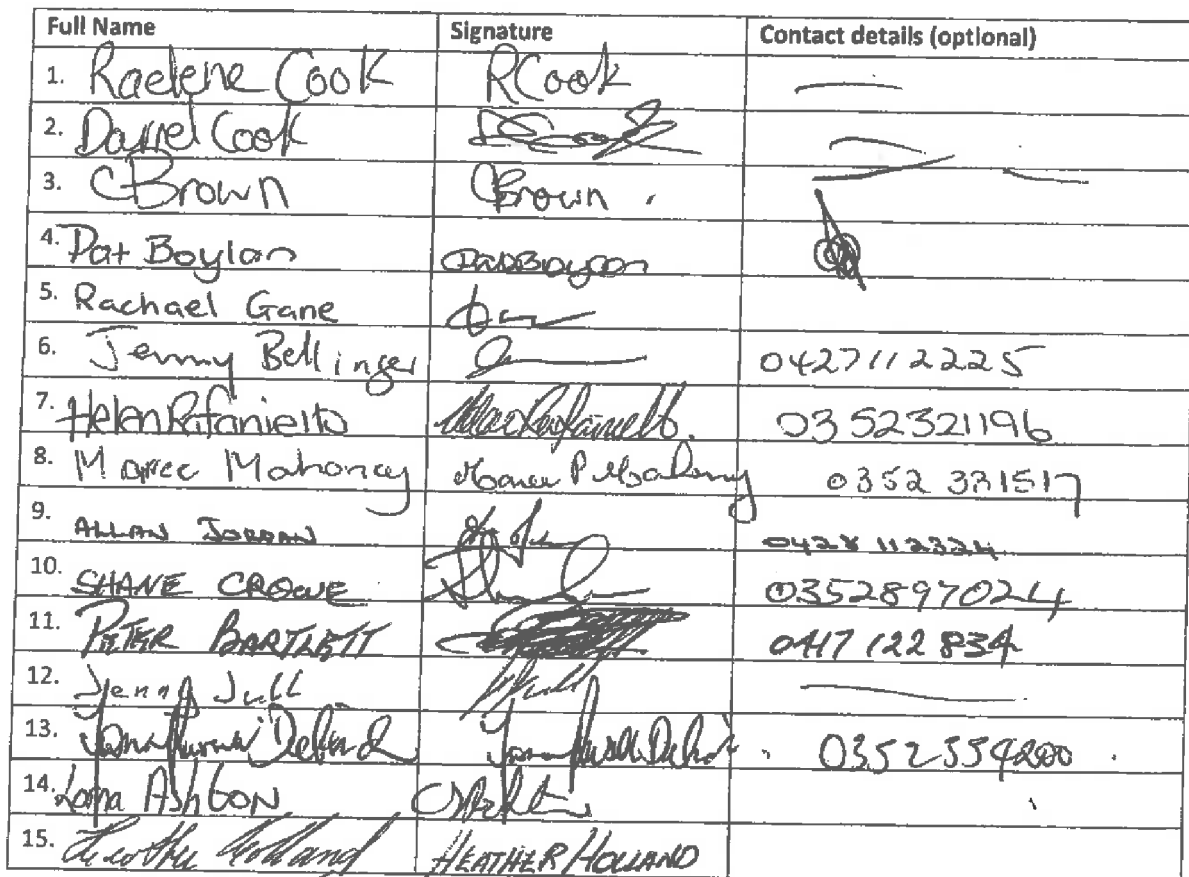 Full Name Signature Contact details (optional)
1. Raelene Cook RCook
2. Darrel Cook
3. CBrown CBrown .
4. Pat Boylan
5. Rachael Gane
6. Jenny Bellinger 0427112225
7. Helen Rafaniello Helen Rafaniello. 0352321196
8. Maree Mahoney Maree P Mahoney 0352 331517
9. ALLAN JORDAN 0428 112324
10. SHANE CROWE 0352897024
11. PETER BARTLETT 0417 122 834
12. Jenny Jull
13. 0352354200
14. Lorna Ashton
15. Heather Holland HEATHER HOLLAND